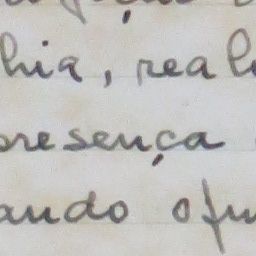 hia, real
presença
ando o fu